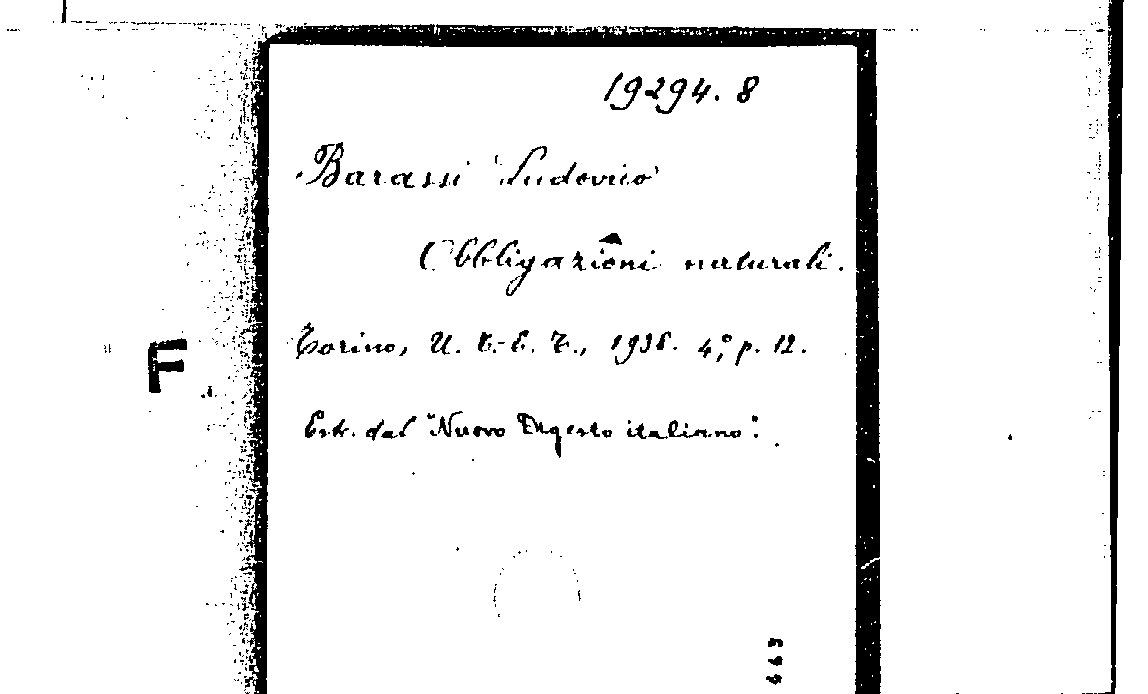 19294. 8
Barassi Ludovico
Obbligazioni naturali.
Torino, U. T.-E. T., 1938. 4°, p. 12.
F
Estr. dal "Nuovo Digesto italiano".
443